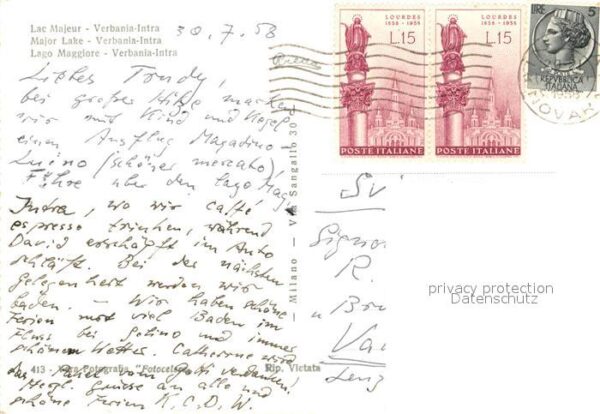 Lac Majeur - Verbania-Intra
Major Lake - Verbania-Intra
Lago Maggiore - Verbania-Intra
30.7.58
Liebes Trudy,
bei grosser Hitze machen
wir mit Kind und Kegel
einen Ausflug Magadino
Luino (schöner mercato)
Fähre über den Lago Mag.
Intra, wo wir caffé
espresso trinken, während
David erschöpft im Auto
schläft. Bei der nächsten
Gelegenheit werden wir
baden. - Wir haben schöne
Ferien mit viel Baden im
Fluss bei und immer
schönem Wetter. Catherine wird
das verdanken.
Herzl. Grüsse an alle und
schöne Ferien K.C.D.W.
413 - Vera Fotografia "Fotocel
Rip. Vietata
- Milano - Via Sangallo 30
LOURDES
1858 - 1958
L.15
POSTE ITALIANE
LOURDES
1858 - 1958
L.15
POSTE ITALIANE
LIRE 5
REPVBBLICA
ITALIANA
NOVAR
Signor
R.
u
Va
privacy protection
Datenschutz